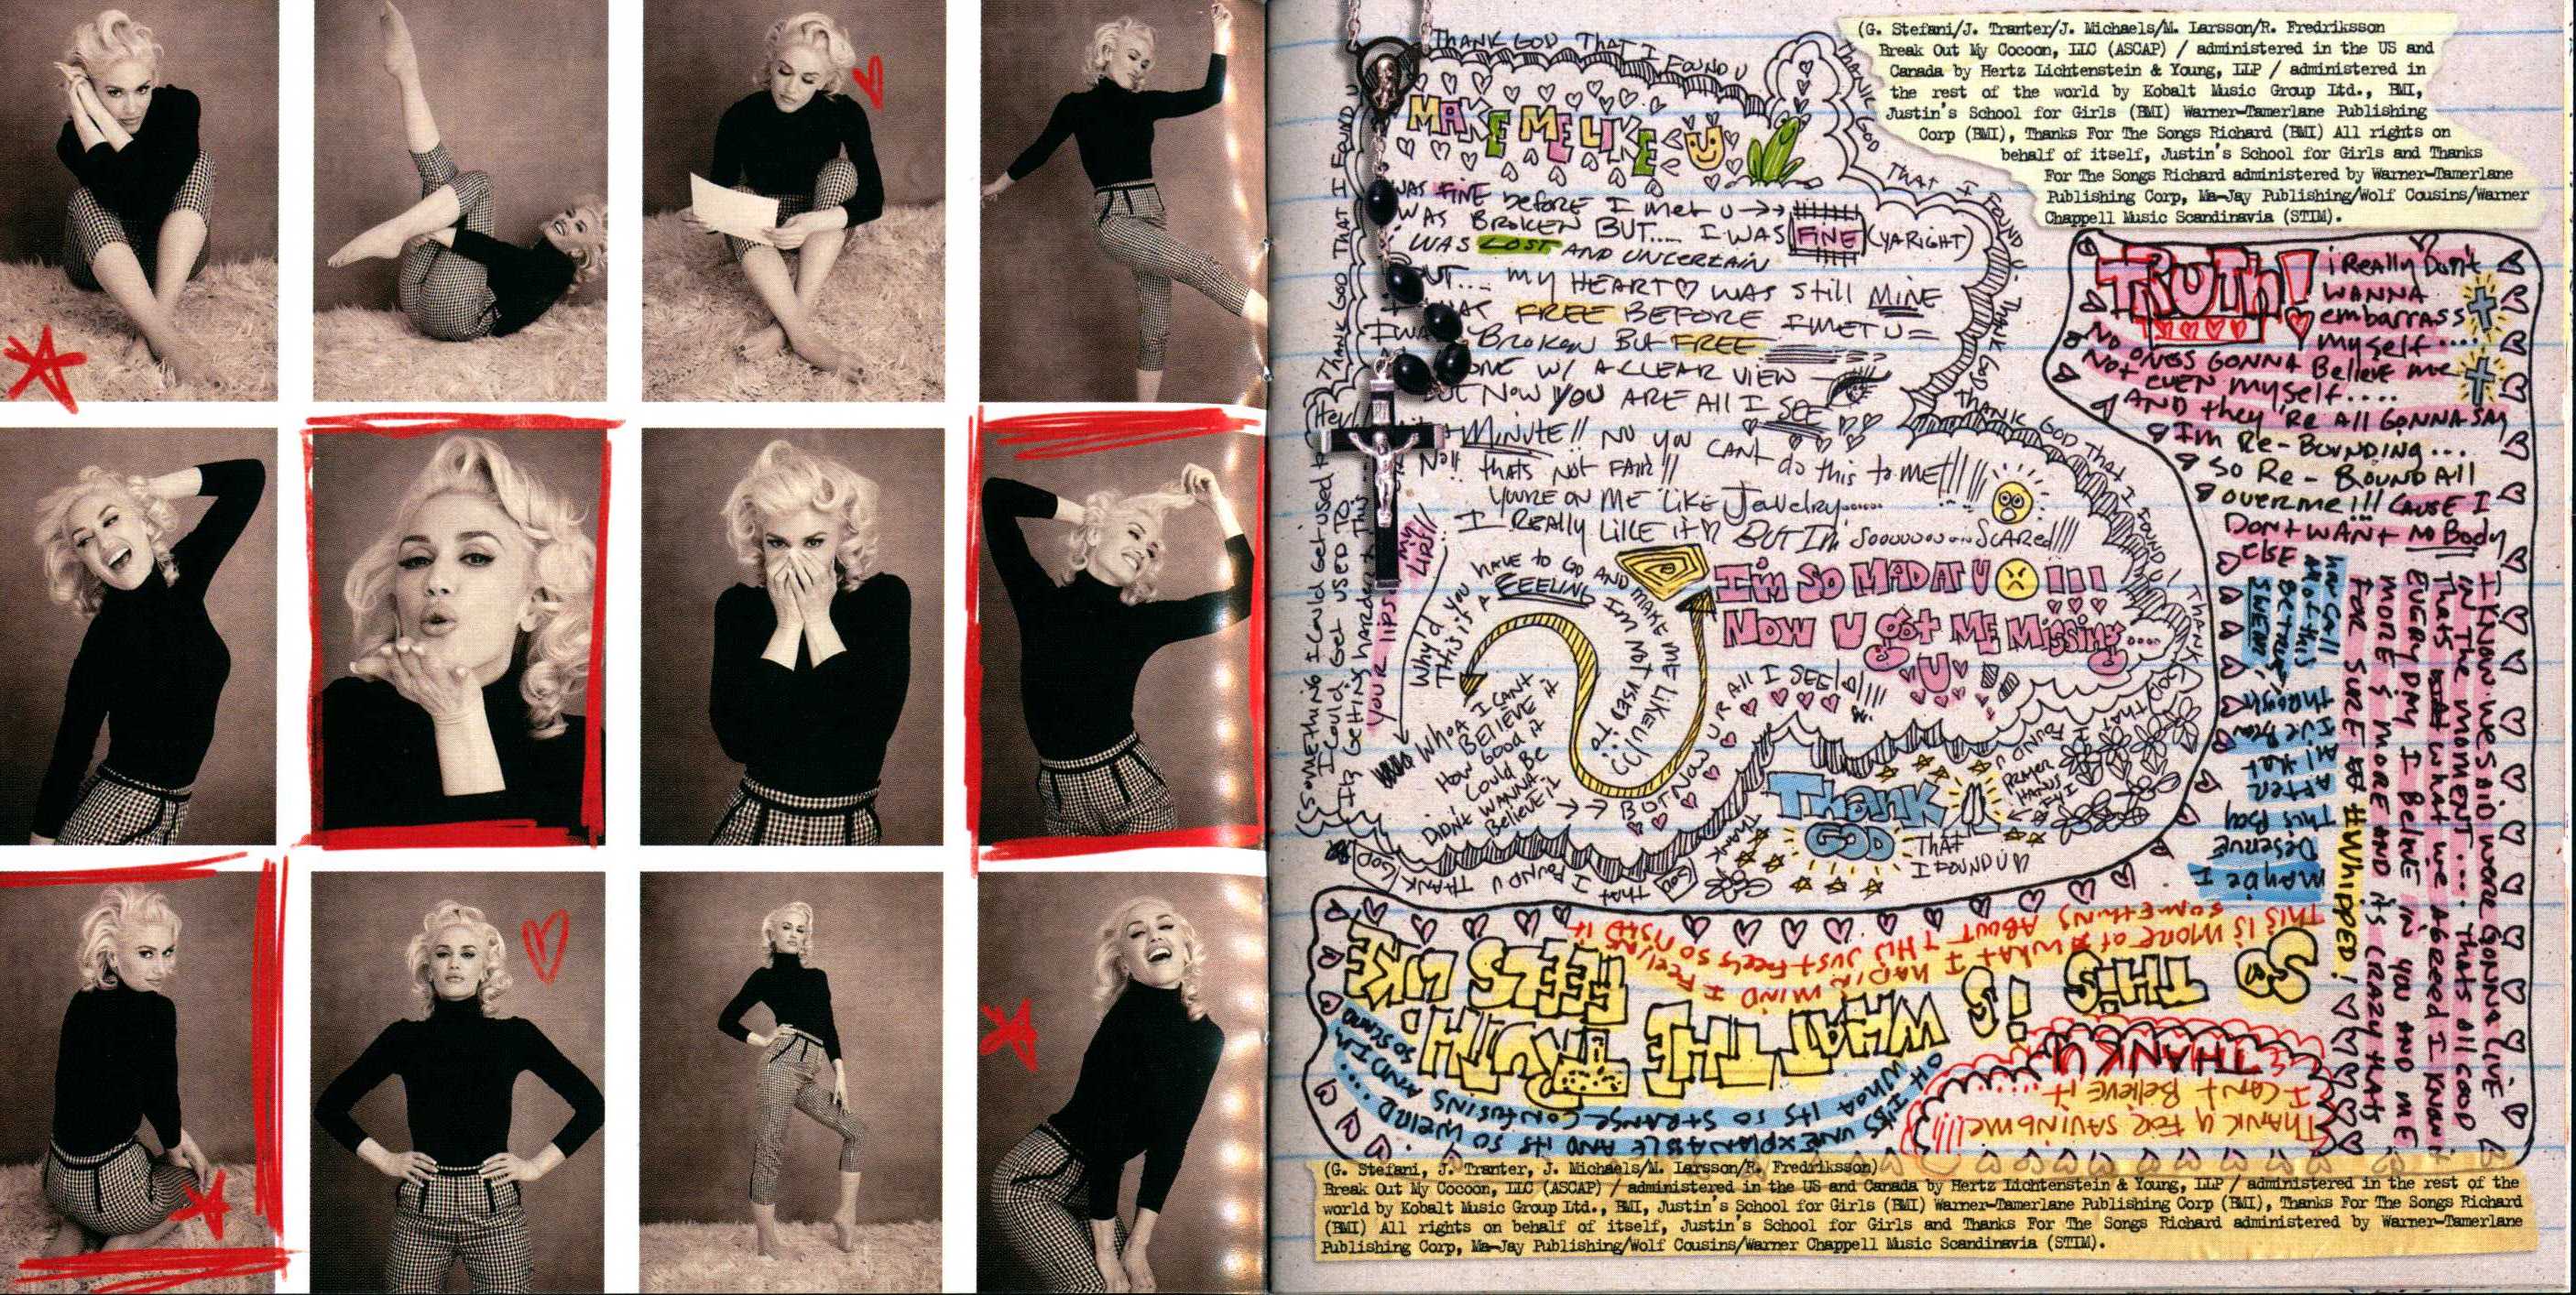 (G. Stefani/J. Tranter/J. Michaels/M. Larsson/R. Fredriksson
Break Out My Cocoon, LLC (ASCAP) / administered in the US and
Canada by Hertz Lichtenstein & Young, LLP / administered in
the rest of the world by Kobalt Music Group Ltd., BMI,
Justin's School for Girls (BMI) Warner-Tamerlane Publishing
Corp (BMI), Thanks For The Songs Richard (BMI) All rights on
behalf of itself, Justin's School for Girls and Thanks
For The Songs Richard administered by Warner-Tamerlane
Publishing Corp, Ma-Jay Publishing/Wolf Cousins/Warner
Chappell Music Scandinavia (STIM).
THANK GOD THAT I FOUND U
THANK GOD THAT I FOUND U
THANK GOD THAT I FOUND U
THANK GOD THAT I FOUND U
MAKE ME LIKE U
WAS FINE before I met U
WAS BROKEN BUT.... I WAS FINE (YA RIGHT)
WAS LOST AND UNCERTAIN
MY HEART WAS Still MINE
FREE BEFORE I MET U
BROKEN BUT FREE
W/ A CLEAR VIEW
NOW YOU ARE All I SEE
MINUTE!! NO YOU CANT do this to ME!!!!!
No!! thats NOT FAIR!!
YOURE ON ME LIKE Jewelry......
I REALLY LIKE it BUT IM Sooooooo... SCARed!!!
I'M SO MAD AT U !!!
NOW U GOT ME Missing....
U
Why'd YOU HAVE to GO AND MAKE ME LIKE U???
This is A FEELING IM NOT USED TO
Whoa I CANT
BELIEVE it
HOW GOOD it
Could BE
DIDNT WANNA
Believe it
BUT NOW U R All I SEE!
YOUR lips My LIPS!!
(SOMETHING I Could Get used to
I Could Get USED TO
THANK GOD
THAT
I FOUND U
THANK GOD THAT I FOUND U
TRUTH!
i Really Don't
WANNA
embarrass
myself....
NO ONES GONNA Believe me
NOT EVEN myself....
AND they're All GONNA SAY
Im Re-BOUNDING...
SO RE-BOUND All
over me!!! CAUSE I
DON'T WANT NO BODY
ELSE
I KNOW WE SAID WE WERE GONNA LIVE
IN THE MOMENT.... THATS All GOOD
Thats what we AGREED I KNOW it
EVERY DAY I BELIEVE IN YOU AND ME
MORE & MORE AND its CRAZY thats
FOR SURE #Whipped!
HOW CAN
BETRAYS
SWEAR
MAYBE I
Deserve
This Boy
AFTER
All that
I've Been
THROUGH
SO THIS IS
WHAT THE TRUTH
FEELS LIKE
THIS IS MORE OF WHAT I HAD IN MIND I FEEL
SOMETHING ABOUT THIS JUST FEELS SO
OH WHOA ITS SO STRANGE CONFUSING AND IM SO SCARED
ITS UNEXPLAINABLE AND ITS SO WEIRD....
THANK U
I CANT Believe it
THANK U FOR SAVING ME!!!!
(G. Stefani, J. Tranter, J. Michaels/M. Larsson/R. Fredriksson)
Break Out My Cocoon, LLC (ASCAP) / administered in the US and Canada by Hertz Lichtenstein & Young, LLP / administered in the rest of the
world by Kobalt Music Group Ltd., BMI, Justin's School for Girls (BMI) Warner-Tamerlane Publishing Corp (BMI), Thanks For The Songs Richard
(BMI) All rights on behalf of itself, Justin's School for Girls and Thanks For The Songs Richard administered by Warner-Tamerlane
Publishing Corp, Ma-Jay Publishing/Wolf Cousins/Warner Chappell Music Scandinavia (STIM).